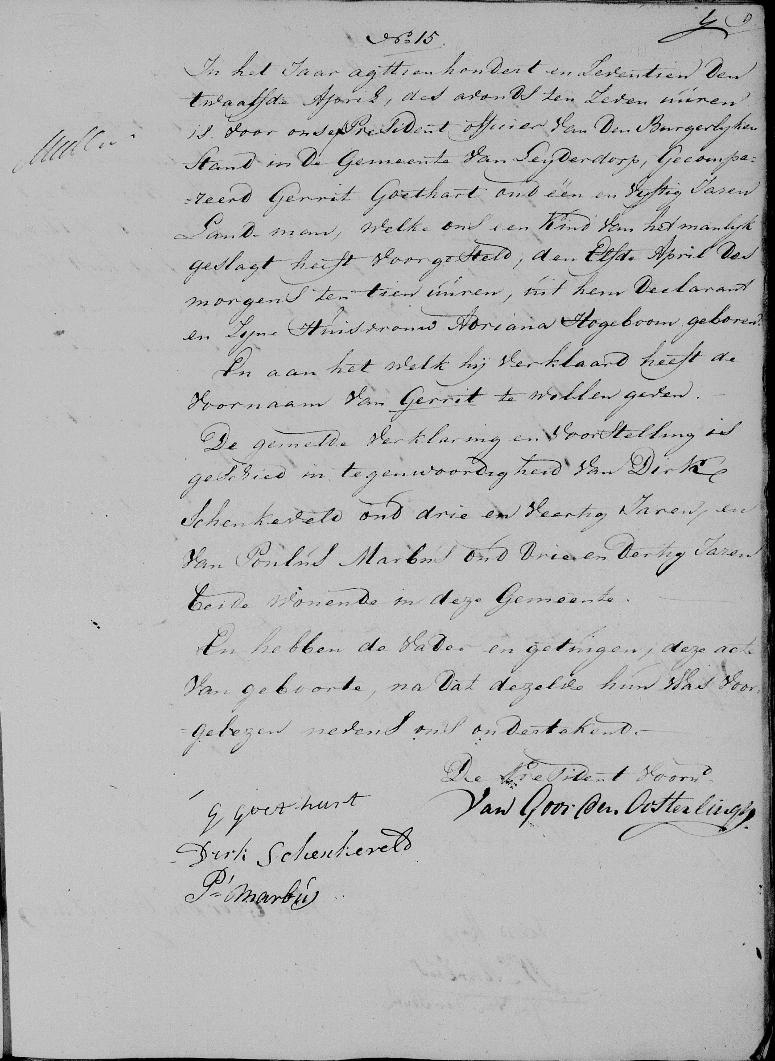 No 15
In het Jaar agttienhondert en Zeventien Den
twaalfde April, des avonds ten Zeven uüren
is voor onse President officier Van Den Burgerlyken
Stand in De Gemeente Van Leyderdorp, Gecompa-
-reerd Gerrit Goethart oud één en Vyftig Jaren
Land-man, welke ons een Kind Van het manlyk
geslagt heeft Voorgesteld, den Elfde April Des
morgens ten tien uüren, uit hem Declarant
en Zyne Huisvrouw Adriana Hogeboom geboren
En aan het welk hij verklaard heeft de
Voornaam Van Gerrit te willen geven.
De gemelde Verklaring en Voorstelling is
geschied in tegenwoordigheid Van Dirk
Schenkeveld oud drie en Veertig Jaren, en
Van Poulus Marbus oud Drie en Dertig Jaren
beide wonende in deze Gemeente.
En hebben de Vader en getuigen, deze acte
Van geboorte, na dat dezelve hun Was Voor-
gelezen nevens ons ondertekend.
De President Voornd
G goethart
Van Goor Den Oosterlingh
Dirk Schenkeveld
P. Marbús